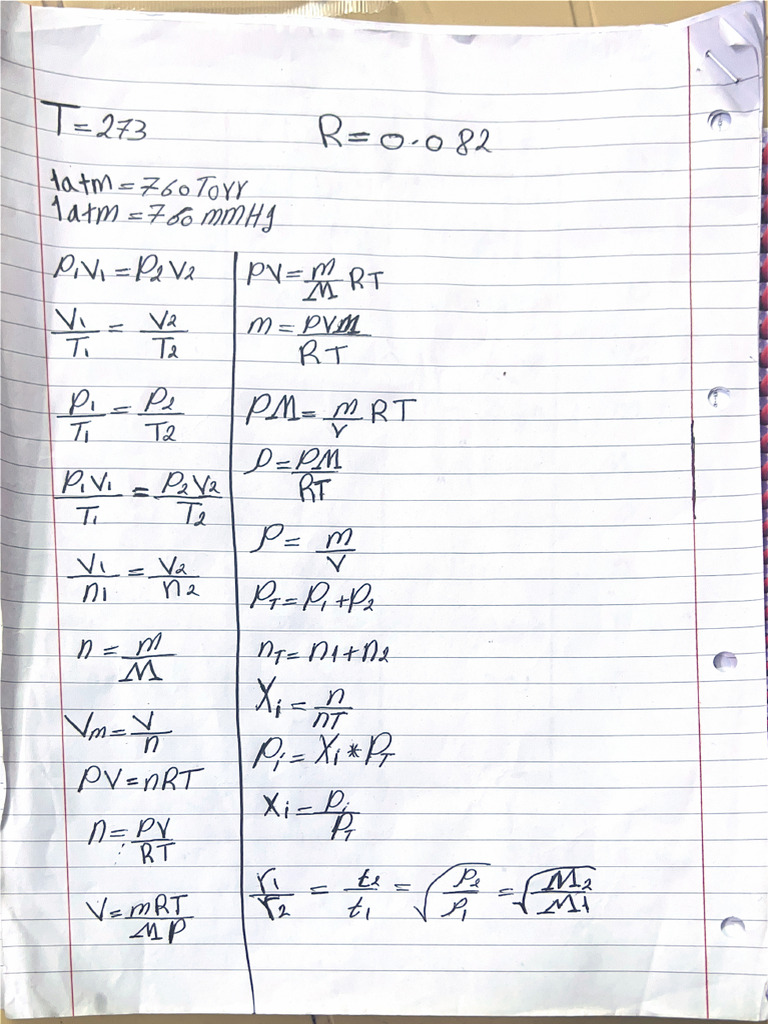 T = 273
R = 0.082
1atm = 760 Torr
1atm = 760 mmHg
P₁V₁ = P₂V₂
V₁/T₁ = V₂/T₂
P₁/T₁ = P₂/T₂
P₁V₁/T₁ = P₂V₂/T₂
V₁/n₁ = V₂/n₂
n = m/M
Vm = V/n
PV = nRT
n = PV/RT
V = mRT/MP
PV = m/M RT
m = PVM/RT
PM = m/V RT
ρ = PM/RT
ρ = m/V
P_T = P₁ + P₂
n_T = n₁ + n₂
Xᵢ = n/nT
Pᵢ = Xᵢ * P_T
Xᵢ = Pᵢ/P_T
r₁/r₂ = t₂/t₁ = √(ρ₂/ρ₁) = √(M₂/M₁)